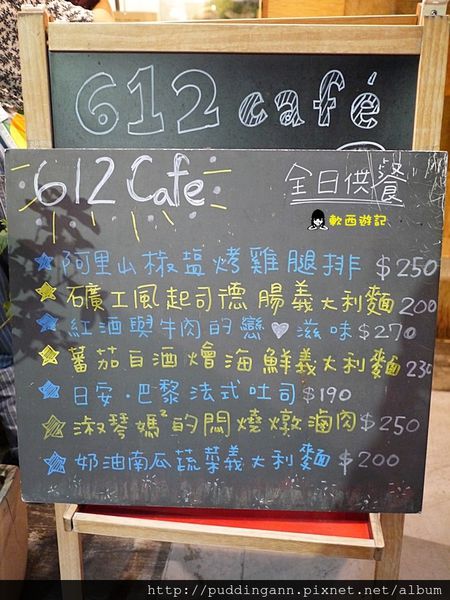 612 café
612 Cafe
全日供餐
軟西遊記
阿里山椒塩烤雞腿排 $250
礦工風起司德腸義大利麵 200
紅酒與牛肉的戀♥滋味 $270
蕃茄白酒燴海鮮義大利麵 230
日安·巴黎法式吐司 $190
淑琴媽²的悶燒燉滷肉 $250
奶油南瓜蔬菜義大利麵 $200
http://puddingann.pixnet.net/album